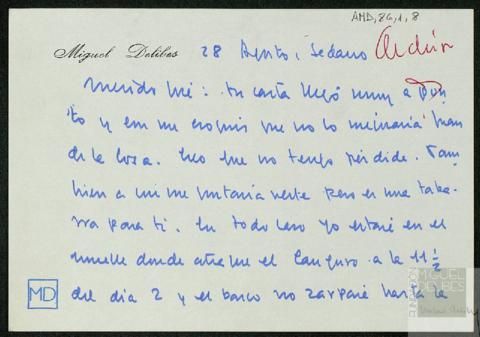 AMD,86,1,8
Miguel Delibes 28 Agosto, Sedano
Querido : tu carta llegó muy a pun
to y con un croquis que no lo mejoraría Juan
de la Cosa. Creo que no tengo pérdida. Tam
bien a mi me gustaría verte pero es una taba-
rra para ti. En todo caso yo estaré en el
muelle donde atraque el Canguro a la 11 ½
del día 2 y el barco no zarpará hasta la
MD
FUNDACIÓN
MIGUEL
DELIBES